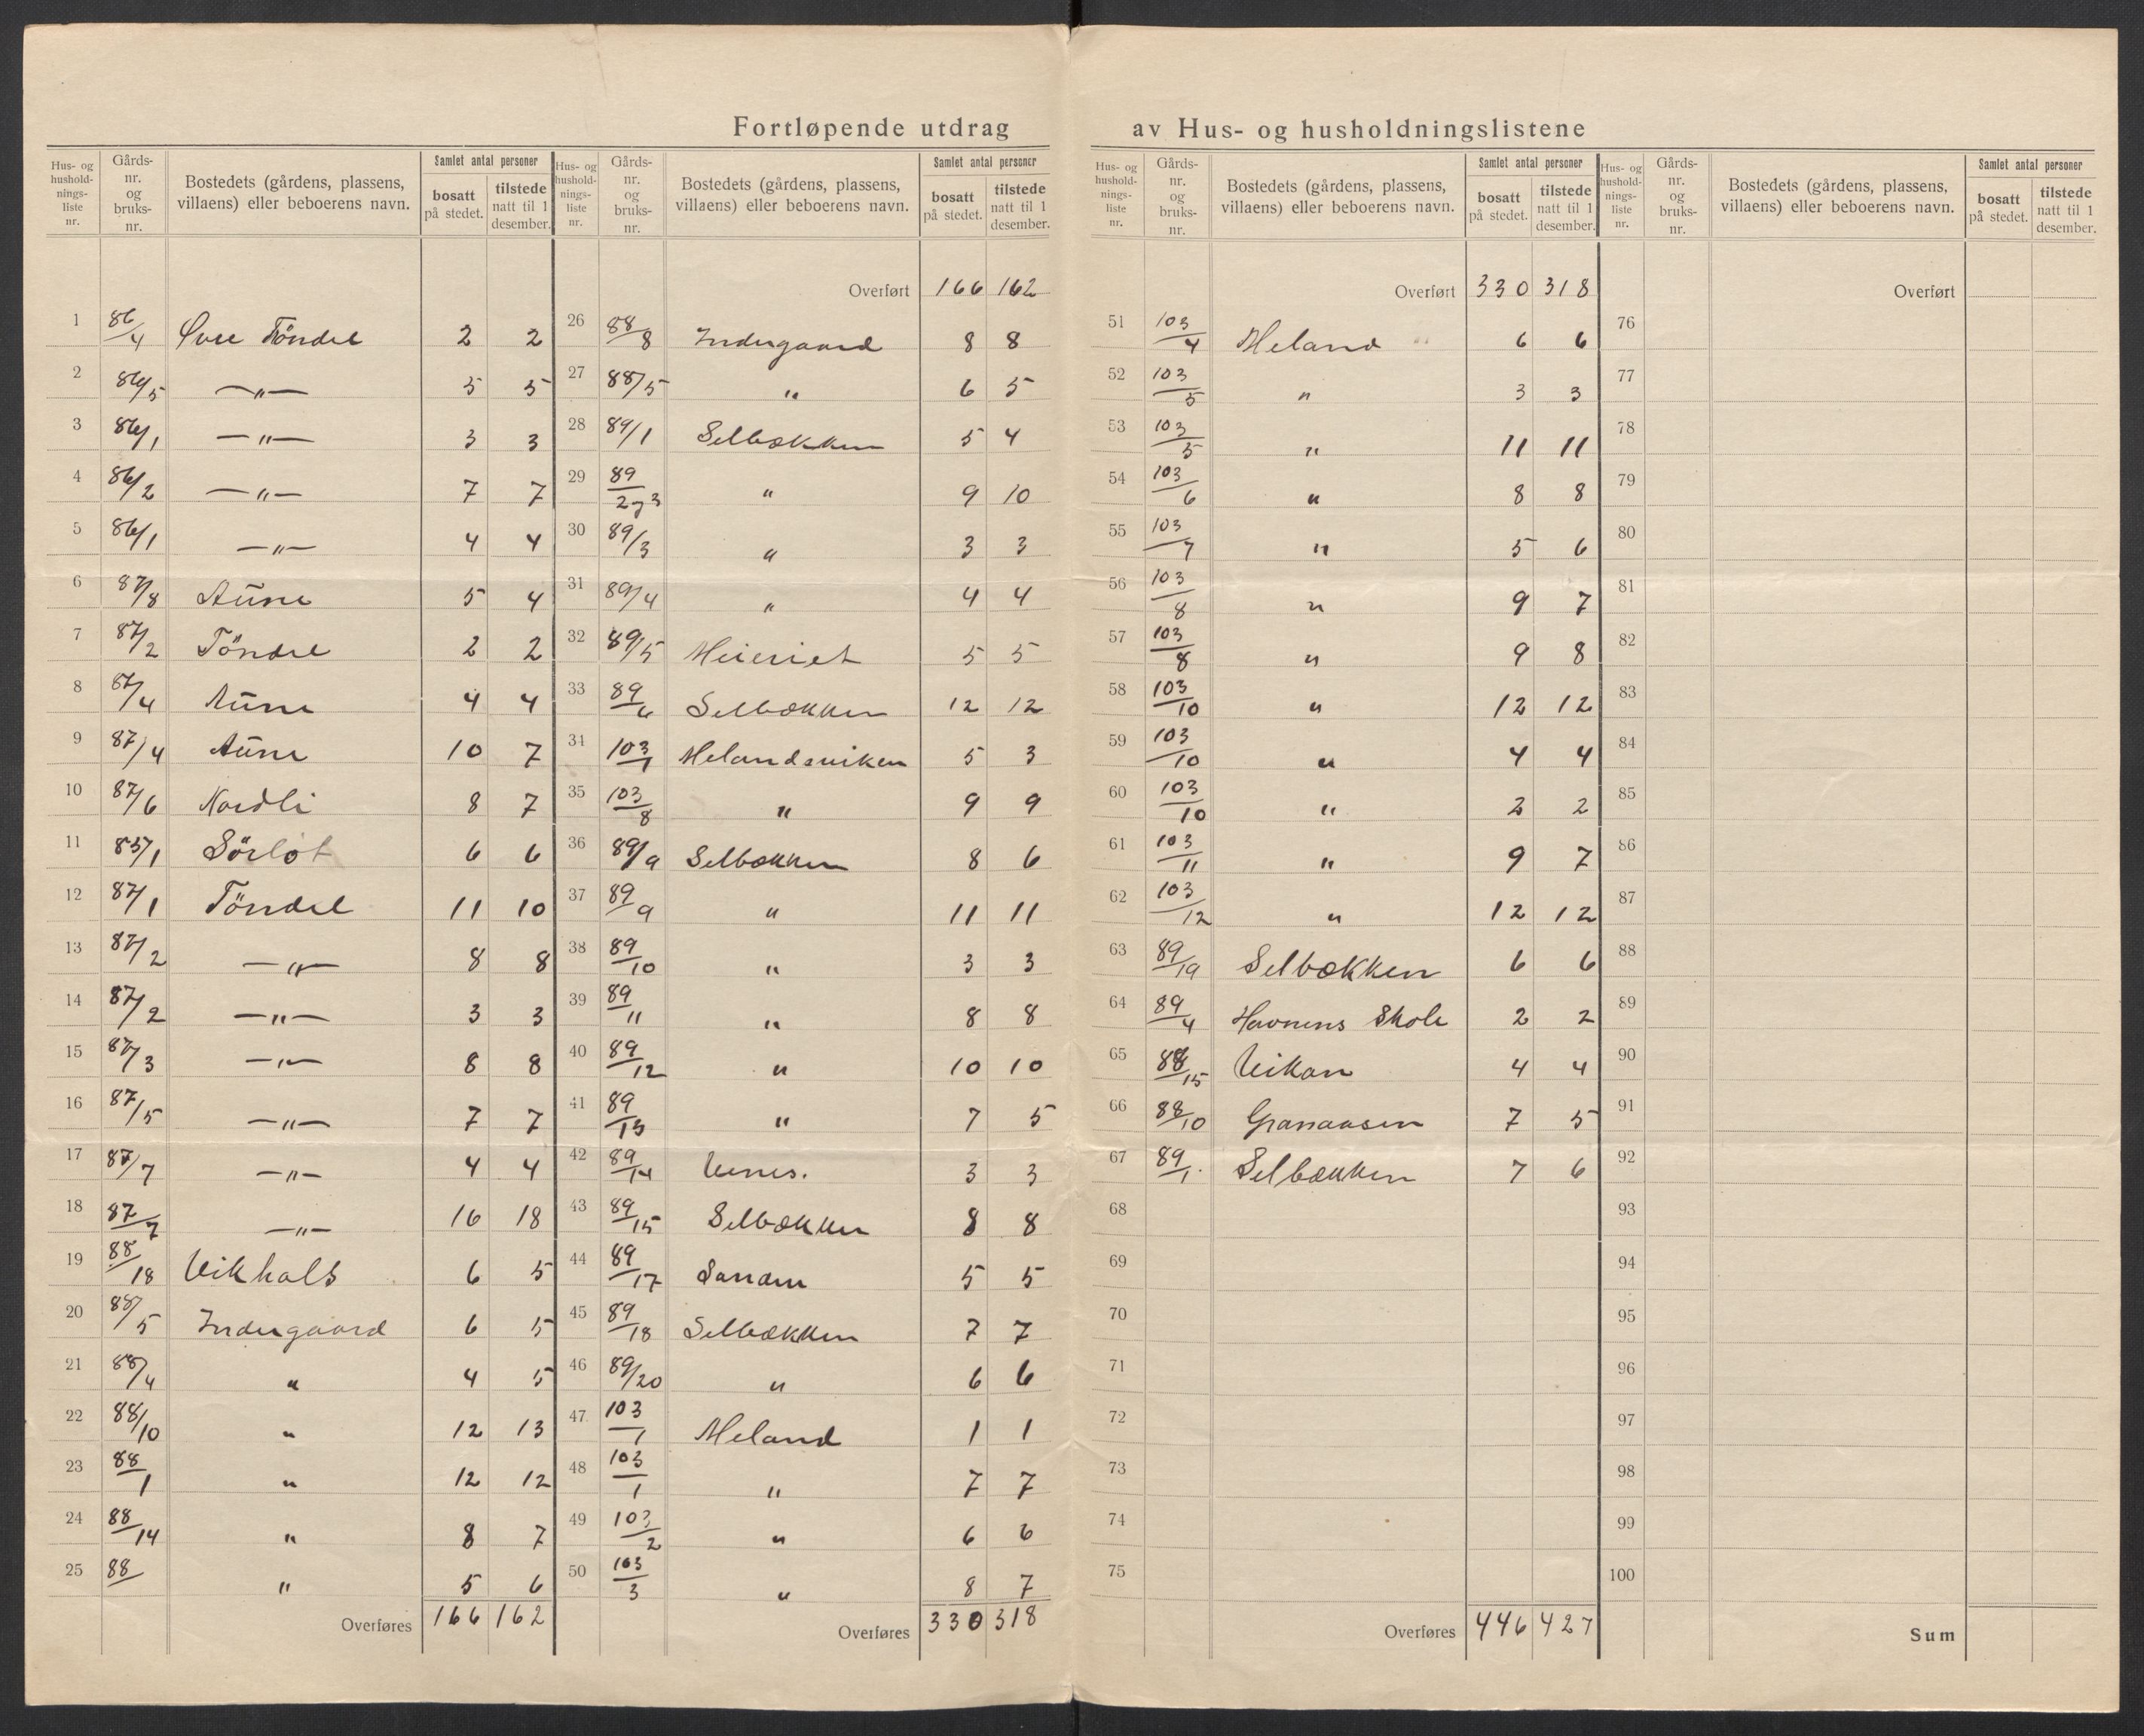 Fortløpende utdrag av Hus- og husholdningslistene
Hus- og hushold-nings-liste nr. Gårds-nr. og bruks-nr. Bostedets (gårdens, plassens, villaens) eller beboerens navn. Samlet antal personer bosatt på stedet. tilstede natt til 1 desember.
1 86/4 Øvre Töndel 2 2
2 86/5 —"— 5 5
3 86/1 —"— 3 3
4 86/2 —"— 7 7
5 86/1 —"— 4 4
6 87/8 Aune 5 4
7 87/2 Töndel 2 2
8 87/4 Aune 4 4
9 87/4 Aune 10 7
10 87/6 Nordli 8 7
11 Sörlöt 6 6
12 87/1 Töndel 11 10
13 87/2 —"— 8 8
14 87/2 —"— 3 3
15 87/3 —"— 8 8
16 87/5 —"— 7 7
17 87/7 —"— 4 4
18 87/7 —"— 16 18
19 88/18 Vikhals 6 5
20 88/5 Indergaard 6 5
21 88/4 " 4 5
22 88/10 " 12 13
23 88/1 " 12 12
24 88/14 " 8 7
25 88/ " 5 6
Overføres 166 162
Hus- og hushold-nings-liste nr. Gårds-nr. og bruks-nr. Bostedets (gårdens, plassens, villaens) eller beboerens navn. Samlet antal personer bosatt på stedet. tilstede natt til 1 desember.
Overført 166 162
26 88/8 Indergaard 8 8
27 88/5 " 6 5
28 89/1 Selbækken 5 4
29 89/2 og 3 " 9 10
30 89/3 " 3 3
31 89/4 " 4 4
32 89/5 Meieriet 5 5
33 89/6 Selbækken 12 12
34 103/1 Melandsviken 5 3
35 103/8 " 9 9
36 89/9 Selbækken 8 6
37 89/9 " 11 11
38 89/10 " 3 3
39 89/11 " 8 8
40 89/12 " 10 10
41 89/13 " 7 5
42 89/14 Vennes. 3 3
43 89/15 Selbækken 8 8
44 89/17 Sanden 5 5
45 89/18 Selbækken 7 7
46 89/20 " 6 6
47 103/1 Meland 1 1
48 103/1 " 7 7
49 103/2 " 6 6
50 103/3 " 8 7
Overføres 330 318
Hus- og hushold-nings-liste nr. Gårds-nr. og bruks-nr. Bostedets (gårdens, plassens, villaens) eller beboerens navn. Samlet antal personer bosatt på stedet. tilstede natt til 1 desember.
Overført 330 318
51 103/4 Meland 6 6
52 103/5 " 3 3
53 103/5 " 11 11
54 103/6 " 8 8
55 103/7 " 5 6
56 103/8 " 9 7
57 103/8 " 9 8
58 103/10 " 12 12
59 103/10 " 4 4
60 103/10 " 2 2
61 103/11 " 9 7
62 103/12 " 12 12
63 89/19 Selbækken 6 6
64 89/4 Havnens Skole 2 2
65 88/15 Vikan 4 4
66 88/10 Granaasen 7 5
67 89/1 Selbækken 7 6
68
69
70
71
72
73
74
75
Overføres 446 427
Hus- og hushold-nings-liste nr. Gårds-nr. og bruks-nr. Bostedets (gårdens, plassens, villaens) eller beboerens navn. Samlet antal personer bosatt på stedet. tilstede natt til 1 desember.
Overført
76
77
78
79
80
81
82
83
84
85
86
87
88
89
90
91
92
93
94
95
96
97
98
99
100
Sum